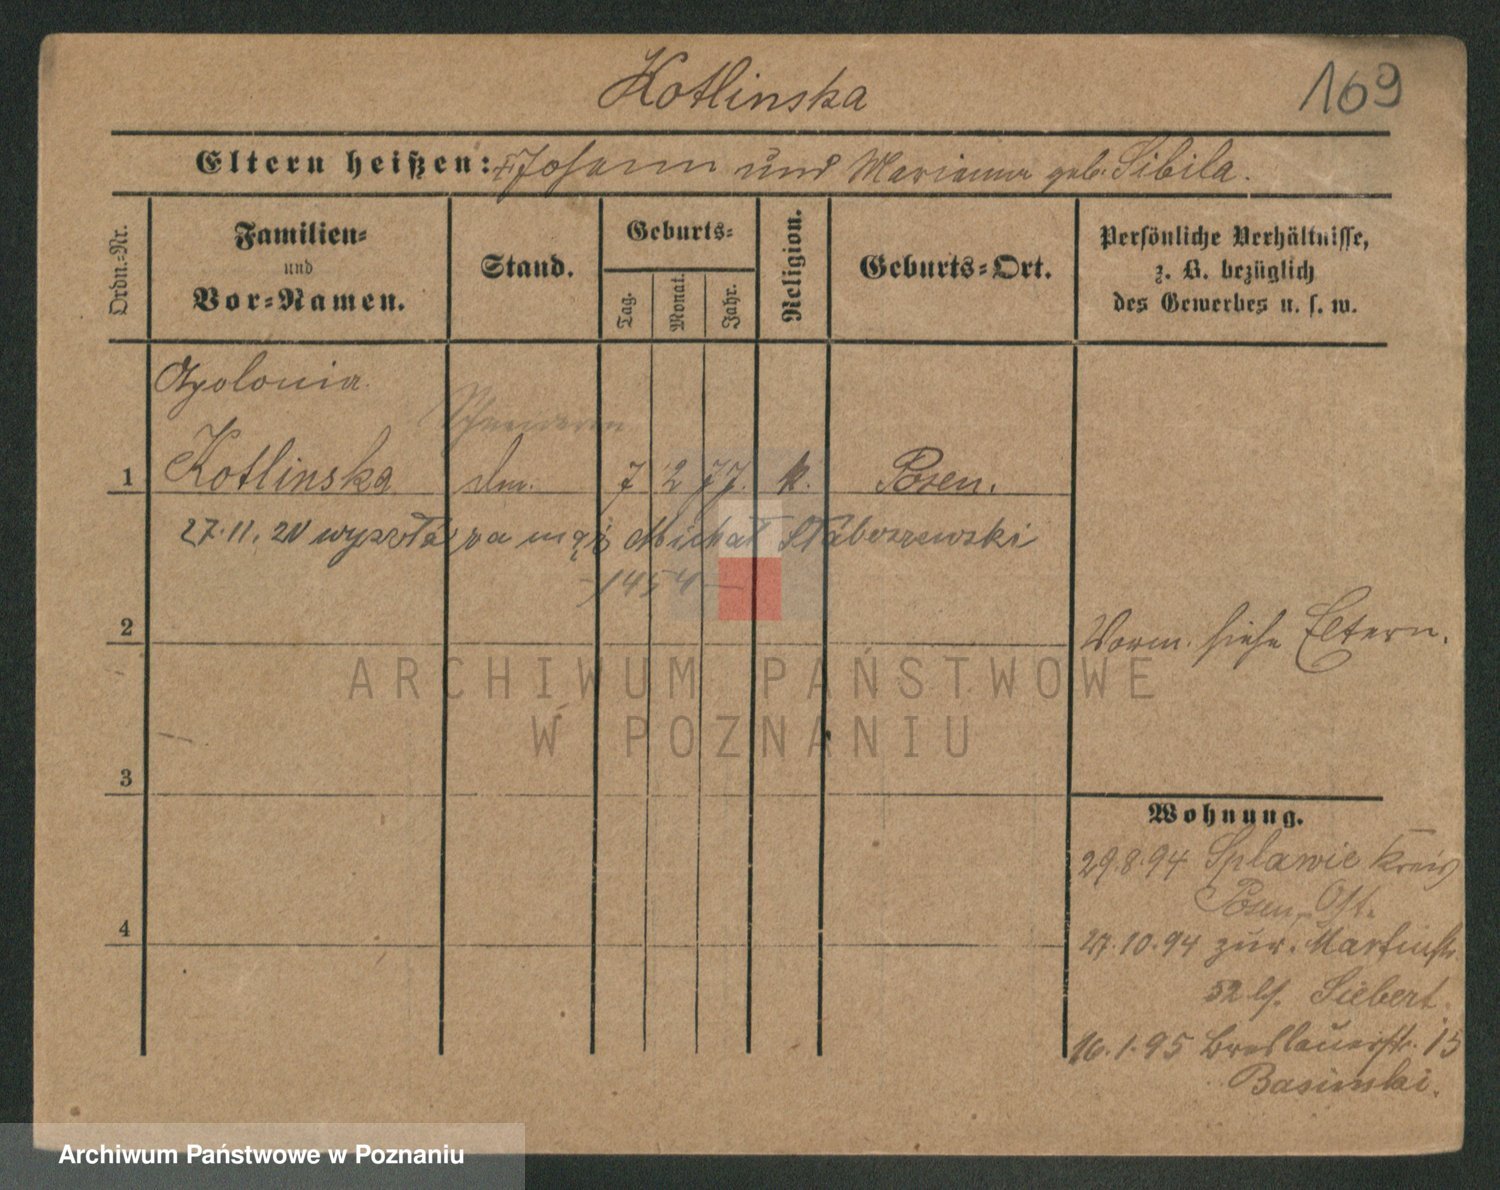 Kotlinska
169
Eltern heißen: Johann und Marianna geb. Sibila.
Ordn.=Nr.
Familien=
und
Vor=Namen.
Stand.
Geburts=
Tag.
Monat.
Jahr.
Religion.
Geburts=Ort.
Persönliche Verhältnisse,
z. B. bezüglich
des Gewerbes u. s. w.
Apolonia
Schneiderin
1 Kotlinska 7 2 77. k. Posen.
27.11.20 wyszła za mąż Michał Staboszewski
-1454-
2
Vorm. siehe Eltern.
3
4
Wohnung.
29.8.94 Splawie Kreis
Posen Ost.
27.10.94 zur. Martinstr.
52 bei Siebert.
16.1.95 Breslauerstr. 15
Basinski.
ARCHIWUM PAŃSTWOWE
W POZNANIU
Archiwum Państwowe w Poznaniu